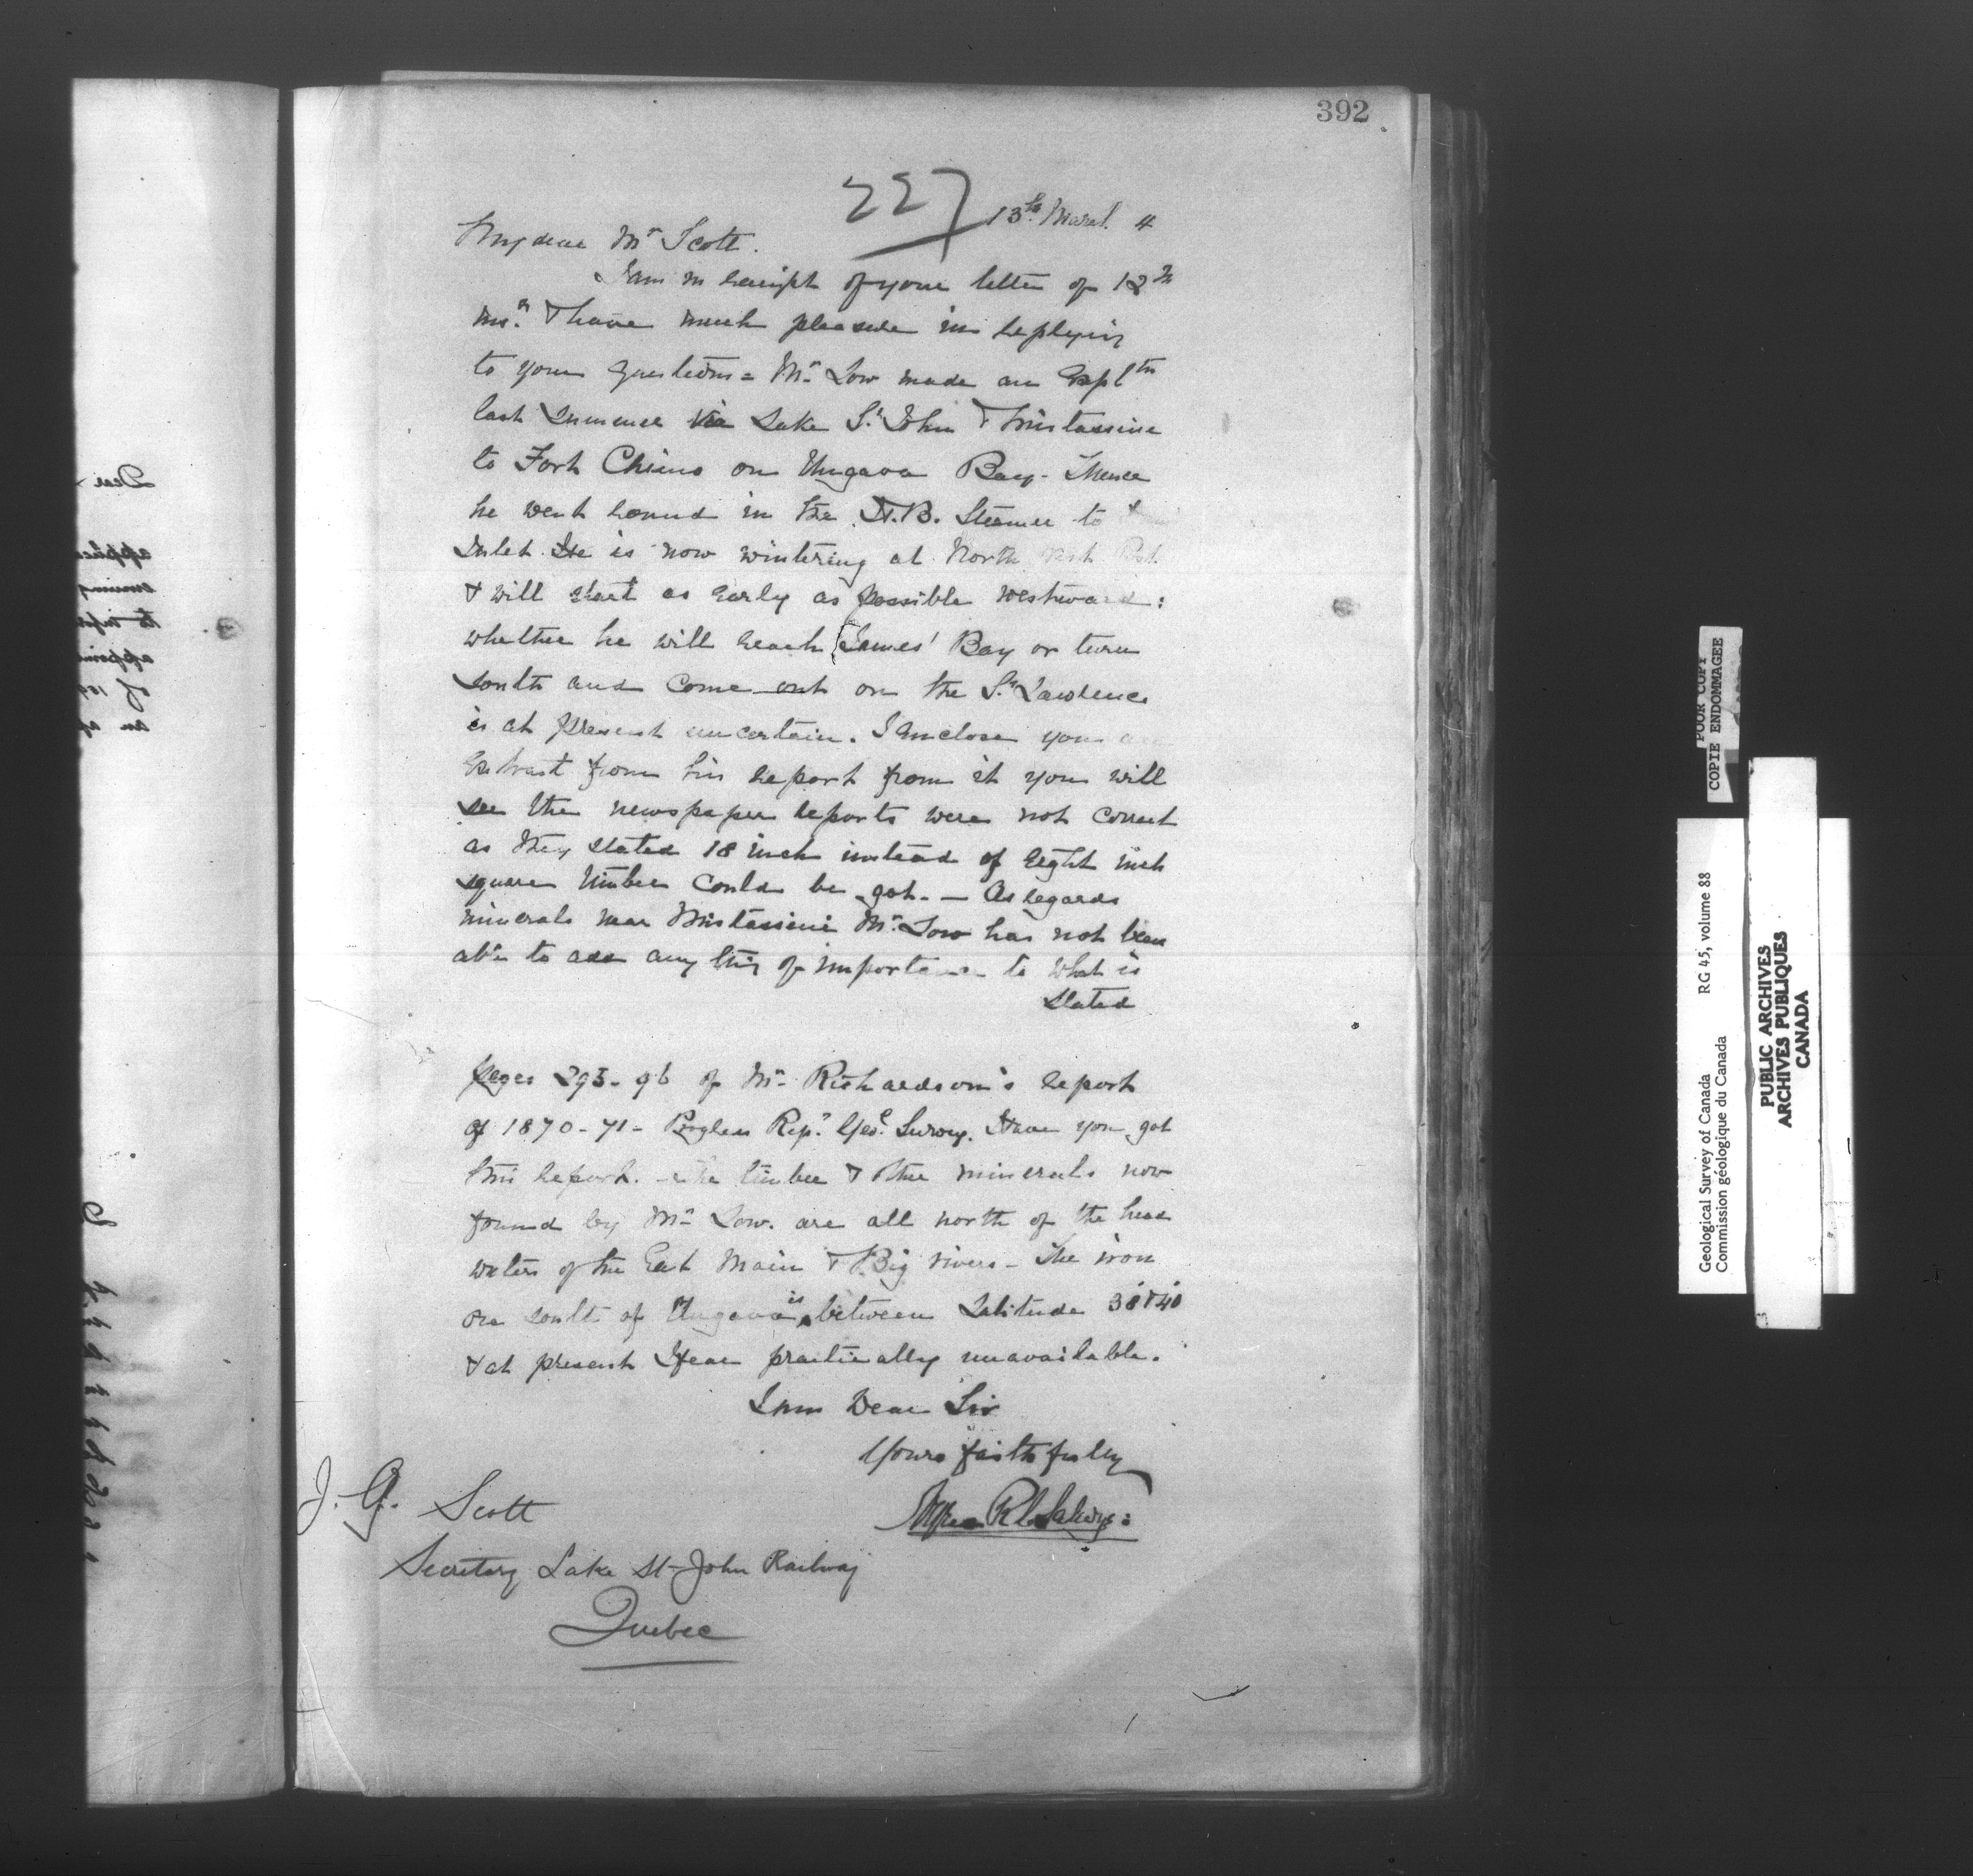 392
227
13th March 4
My dear Mr Scott.
I am in receipt of your letter of 12th
Inst. & have much pleasure in replying
to your questions = Mr Low made an Expltn
last summer via Lake St John & Mistassini
to Fort Chimo on Ungava Bay. Thence
he went round in the H.B. Steamer to
Inlet. He is now wintering at North West
& will start as early as possible westward:
whether he will reach James' Bay or turn
south and come out on the St Lawrence
is at present uncertain. I enclose you an
Extract from his report from it you will
see the newspaper reports were not correct
as they stated 18 inch instead of eight inch
square timber could be got. — As regards
minerals near Mistassini Mr Low has not been
able to add any thing of importance to what is
stated
pages 295-96 of Mr Richardson's report
of 1870-71 - Progress Rep. Geol. Survey. Have you got
this report. The timber & other minerals now
found by Mr Low. are all north of the head
waters of the East Main & Big rivers - The iron
ore south of Ungava is between Latitude 38 & 40
& at present I fear practically unavailable.
I am Dear Sir
Yours faithfully
Alfred R C Selwyn:
J. G. Scott
Secretary Lake St-John Railway
Quebec
POOR COPY
COPIE ENDOMMAGEE
Geological Survey of Canada RG 45, volume 88
Commission géologique du Canada
PUBLIC ARCHIVES
ARCHIVES PUBLIQUES
CANADA